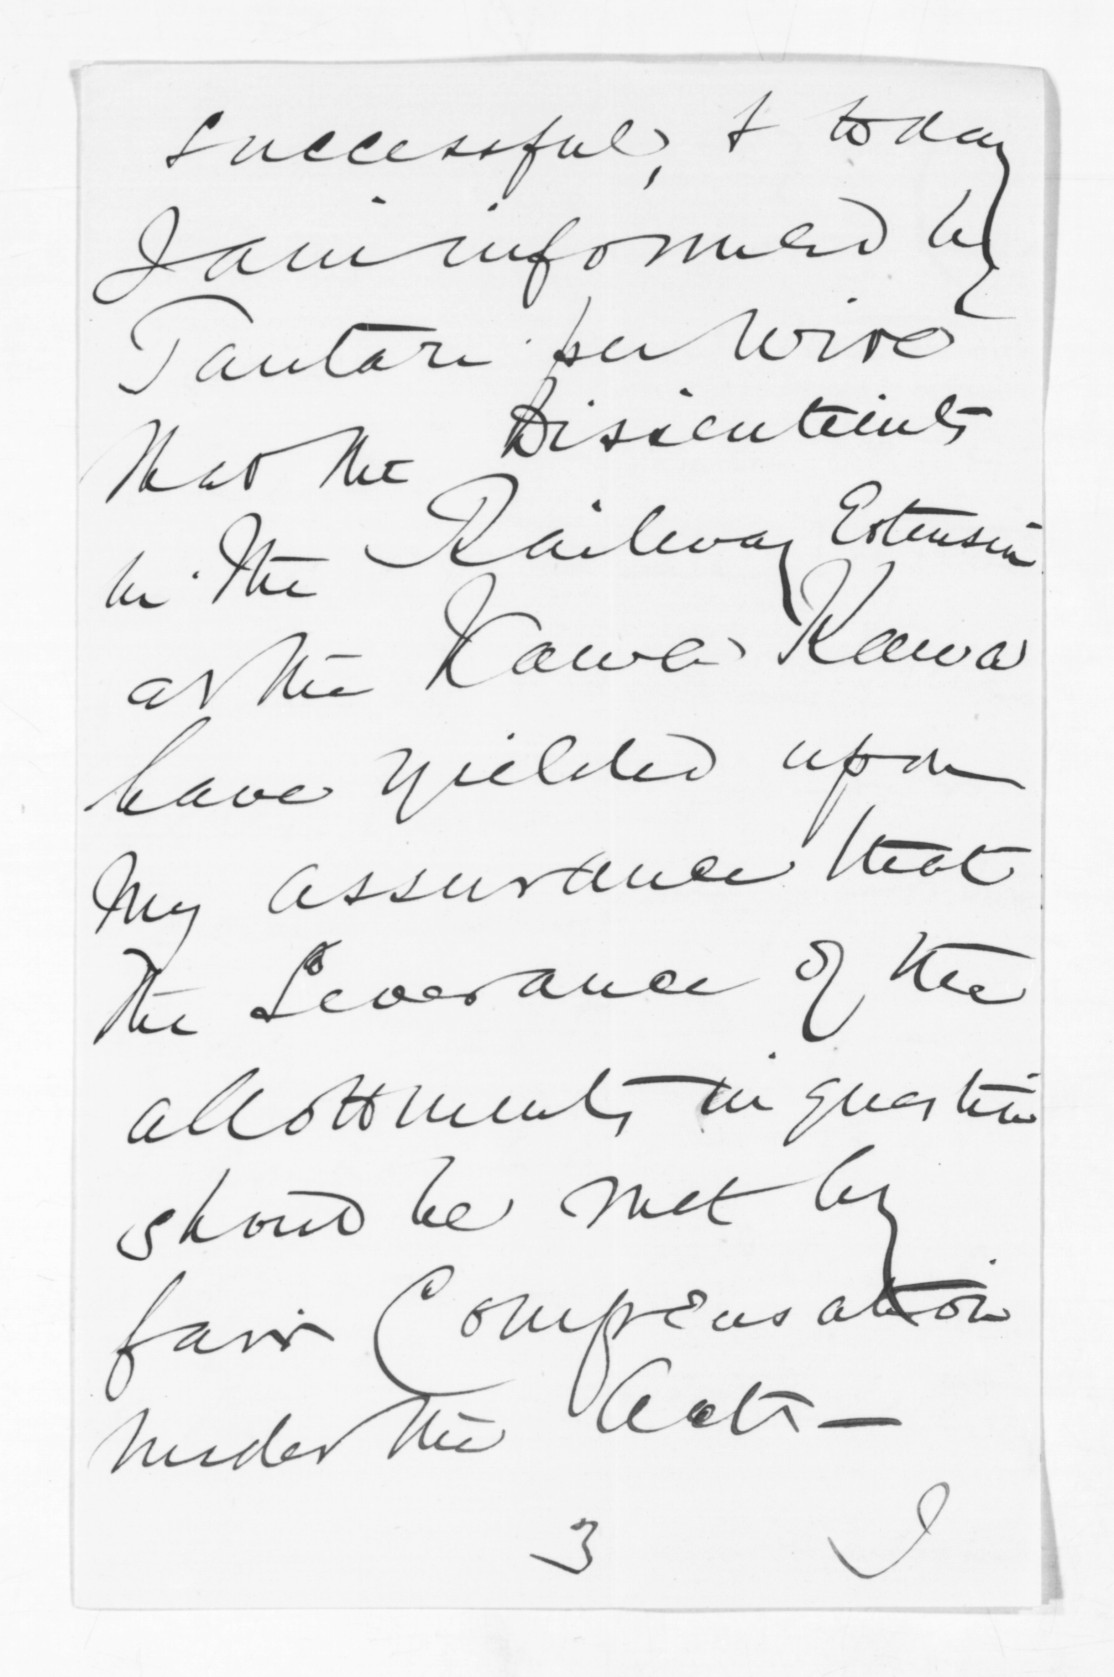 successful, & today
I am informed by
Tautari per wire
that the Dissentients
in the Railway Extension
at the Kawa Kawa
have yielded upon
my assurance that
the Severance of the
allottments in question
should be met by
fair Compensation
under the Acts —
3 I